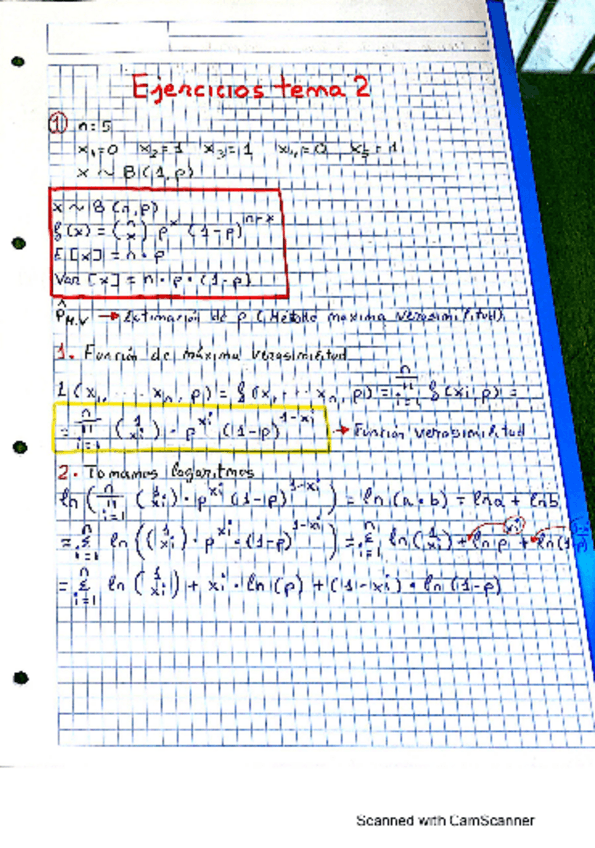 Ejercicios tema 2
① n=5
x₁=0 x₂=1 x₃=1 x₄=0 x₅=1
x ~ B(1,p)
x ~ B(n,p)
f(x) = (n x) p^x (1-p)^(n-x)
E[x] = n·p
Var[x] = n·p·(1-p)
p̂ M.V → Estimación de p (Método maxima verosimilitud).
1. Función de máxima verosimilitud
L(x₁, ... xₙ, p) = f(x₁ ... xₙ, p) = ∏ⁿᵢ₌₁ f(xi, p) =
= ∏ⁿᵢ₌₁ (1 xi) · p^xi · (1-p)^(1-xi) → Función verosimilitud
2. Tomamos logaritmos
ln(∏ⁿᵢ₌₁ (1 xi) · p^xi (1-p)^(1-xi)) = ln(a·b) = ln a + ln b
= Σⁿᵢ₌₁ ln((1 xi) · p^xi · (1-p)^(1-xi)) = Σⁿᵢ₌₁ ln(1 xi) + ln p^xi + ln(1-p)
= Σⁿᵢ₌₁ ln(1 xi) + xi · ln(p) + (1-xi) · ln(1-p)
Scanned with CamScanner